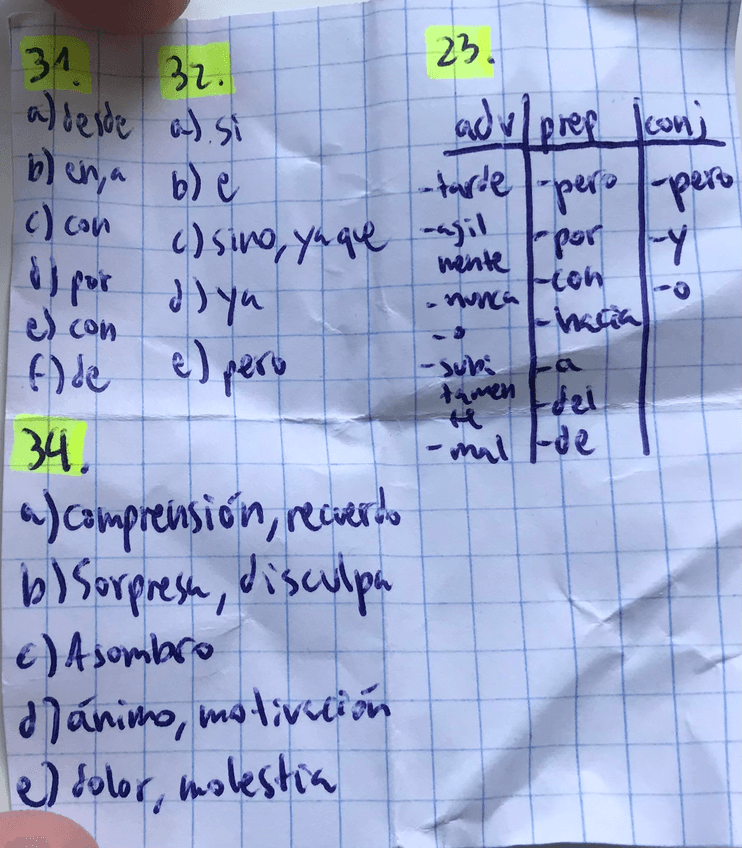 31.
a) desde
b) en, a
c) con
d) por
e) con
f) de
32.
a) si
b) e
c) sino, ya que
d) ya
e) pero
23.
adv | prep | conj
-tarde | -pero | -pero
-agil | -por | -y
mente | -con | -o
-nunca | -hacia
-o
-subi | -a
tamen | -del
te
-mal | -de
34.
a) comprensión, recuerdo
b) Sorpresa, disculpa
c) Asombro
d) ánimo, motivación
e) dolor, molestia